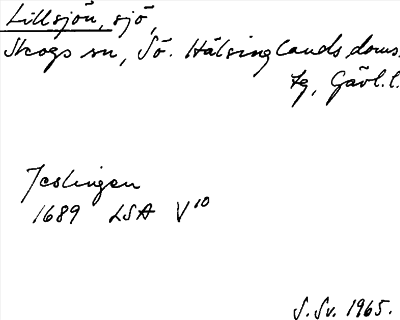 Lillsjön, sjö,
Skogs sn, Sö. Hälsinglands doms.
tg, Gävl. l.
Jeslingen
1689 LSA V¹⁰
S. Sv. 1965.